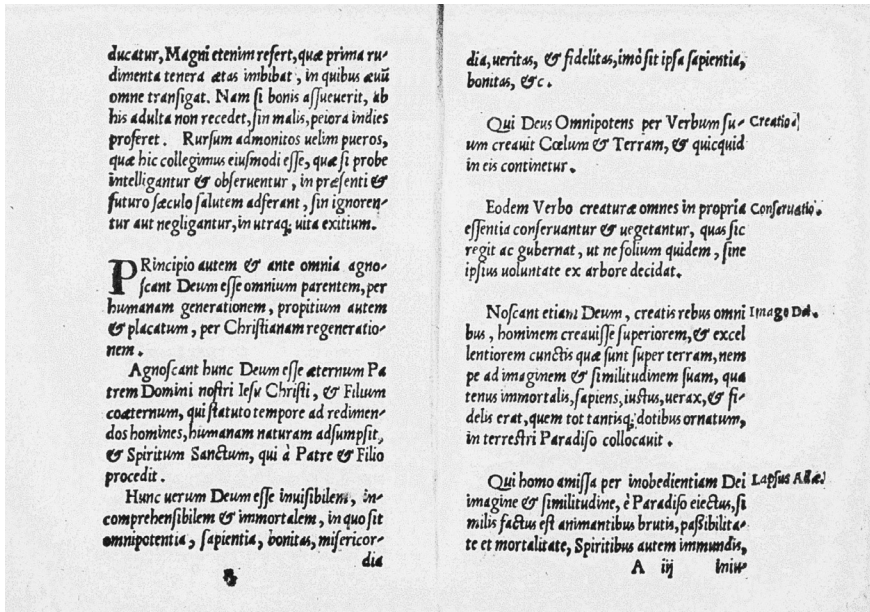 ducatur, Magni etenim refert, quæ prima ru-
dimenta tenera ætas imbibat, in quibus æuũ
omne transigat. Nam si bonis assueuerit, ab
his adulta non recedet, sin malis, peiora indies
proferet. Rursum admonitos uelim pueros,
quæ hic collegimus eiusmodi esse, quæ si probe
intelligantur & obseruentur, in præsenti &
futuro sæculo salutem adferant, sin ignoren-
tur aut negligantur, in utraq; uita exitium.
PRincipio autem & ante omnia agno-
scant Deum esse omnium parentem, per
humanam generationem, propitium autem
& placatum, per Christianam regeneratio-
nem.
Agnoscant hunc Deum esse æternum Pa
trem Domini nostri Iesu Christi, & Filium
coæternum, qui statuto tempore ad redimen-
dos homines, humanam naturam adsumpsit,
& Spiritum Sanctum, qui à Patre & Filio
procedit.
Hunc uerum Deum esse inuisibilem, in-
comprehensibilem & immortalem, in quo sit
omnipotentia, sapientia, bonitas, misericor-
dia
dia, ueritas, & fidelitas, imò sit ipsa sapientia,
bonitas, &c.
Qui Deus Omnipotens per Verbum su- Creatio
um creauit Cœlum & Terram, & quicquid
in eis continetur.
Eodem Verbo creaturæ omnes in propria Conseruatio.
essentia conseruantur & uegetantur, quas sic
regit ac gubernat, ut ne folium quidem, sine
ipsius uoluntate ex arbore decidat.
Noscant etiam Deum, creatis rebus omni Imago Dei.
bus, hominem creauisse superiorem, & excel
lentiorem cunctis quæ sunt super terram, nem
pe ad imaginem & similitudinem suam, qua
tenus immortalis, sapiens, iustus, uerax, & fi-
delis erat, quem tot tantisq; dotibus ornatum,
in terrestri Paradiso collocauit.
Qui homo amissa per inobedientiam Dei Lapsus Adæ.
imagine & similitudine, è Paradiso eiectus, si
milis factus est animantibus brutis, paßibilita-
te et mortalitate, Spiritibus autem immundis,
A iij iniu-